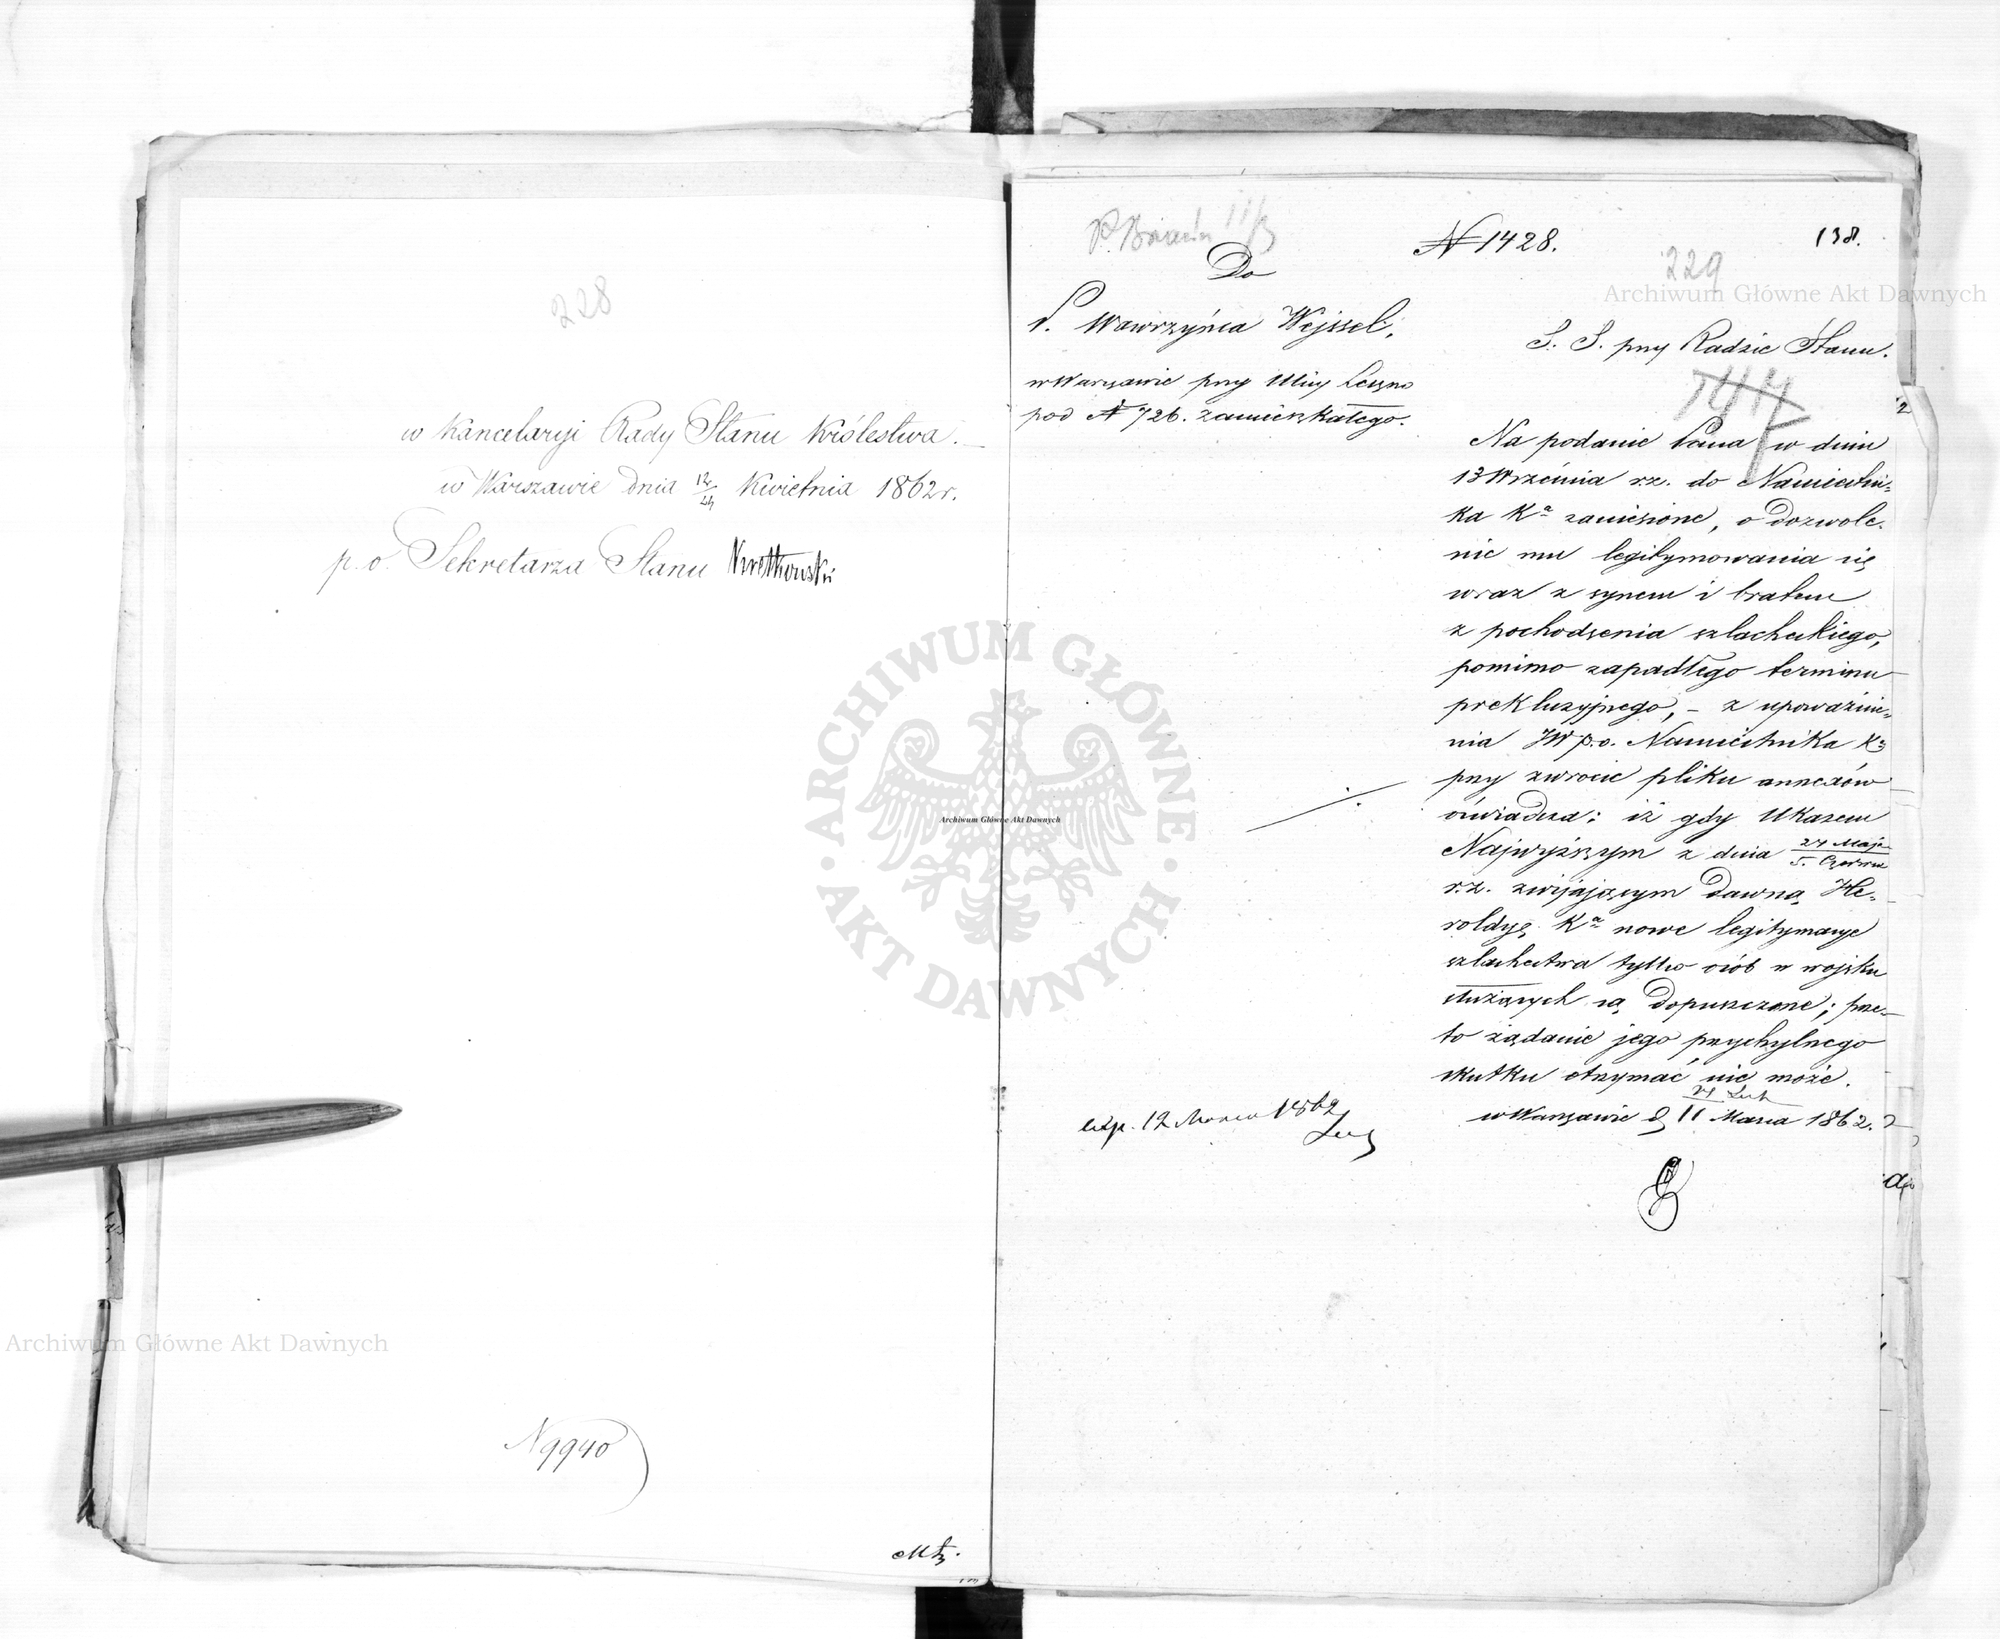 228
w Kancelaryi Rady Stanu Królestwa.
w Warszawie dnia 12/24 Kwietnia 1862 r.
p. o. Sekretarza Stanu
N 9940
138.
N 1428.
229
Do
P. Wawrzyńca Wejssel,
w Warszawie przy Ulicy Leszno
pod N 726. zamieszkałego.
S. S. przy Radzie Stanu.
Na podanie Pana w dniu
13 Września r.z. do Namiestni-
ka Ka zaniesione, o dozwole-
nie mu legitymowania się
wraz z synem i bratem
z pochodzenia szlacheckiego,
pomimo zapadłego terminu
prekluzyjnego, – z upoważnie-
nia JW p.o. Namiestnika Ka
przy zwrocie pliku annexów
oświadcza: iż gdy Ukazem
Najwyższym z dnia 24 Maja / 5. Czerwca
r.z. zwijającym dawną He-
roldyę Ka nowe legitymacye
szlachectwa tylko osób w wojsku
służących są dopuszczone; prze-
to żądanie jego przychylnego
skutku otrzymać nie może.
w Warszawie d. 11 Marca 1862.
exp. 12 Marca 1862
Archiwum Główne Akt Dawnych
Archiwum Główne Akt Dawnych
Archiwum Główne Akt Dawnych
ARCHIWUM GŁÓWNE AKT DAWNYCH